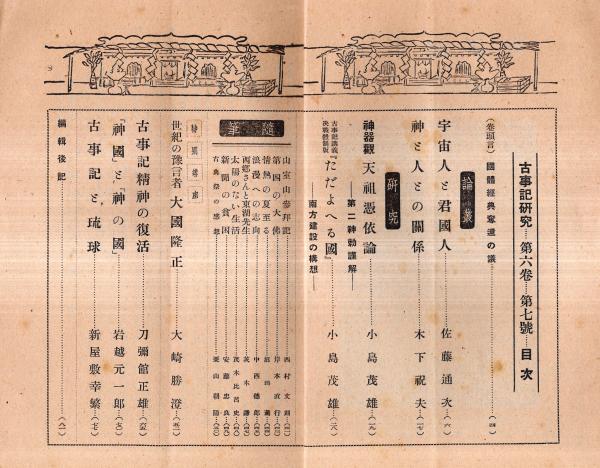 古事記研究 第六卷 第七號 目次
(卷頭言) 國體經典奪還の議 (四)
論叢
宇宙人と君國人 佐藤通次 (六)
神と人との關係 木下祝夫 (一七)
研究
神器觀 天祖憑依論 小島茂雄 (一九)
第二神勅謹解
古事記講義 決戰體制版 『たゞよへる國』 小島茂雄 (二六)
南方建設の構想
隨筆
山室山參拜記 西村文則
第四の大佛 岸本直行
情熱の夏至る
浪漫への志向 中西德郎
西鄕さんと東湖先生 茨木謙
太陽のない生活 茂木比呂史
新聞の貧困 安藤忠良
古典祭の感想 栗山朝陽
世紀の豫言者 大國隆正 大崎勝澄
古事記精神の復活 刀彌館正雄
「神國」と「神の國」 岩越元一郎
古事記と琉球 新屋敷幸繁
編輯後記